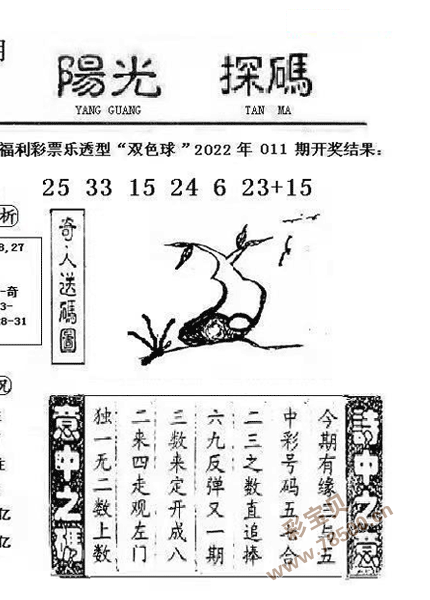 期
陽光 探碼
YANG GUANG TAN MA
福利彩票乐透型“双色球”2022年 011 期开奖结果:
25 33 15 24 6 23+15
析
8,27
-奇
3-
28-31
奇人送碼圖
况
住
亿
亿
詩中之意
今期有缘三与五
中彩号码五七合
二三之数直追捧
六九反弹又一期
三数来定开成八
二来四走观左门
独一无二数上数
意中之碼
彩宝贝
www.78500.cn